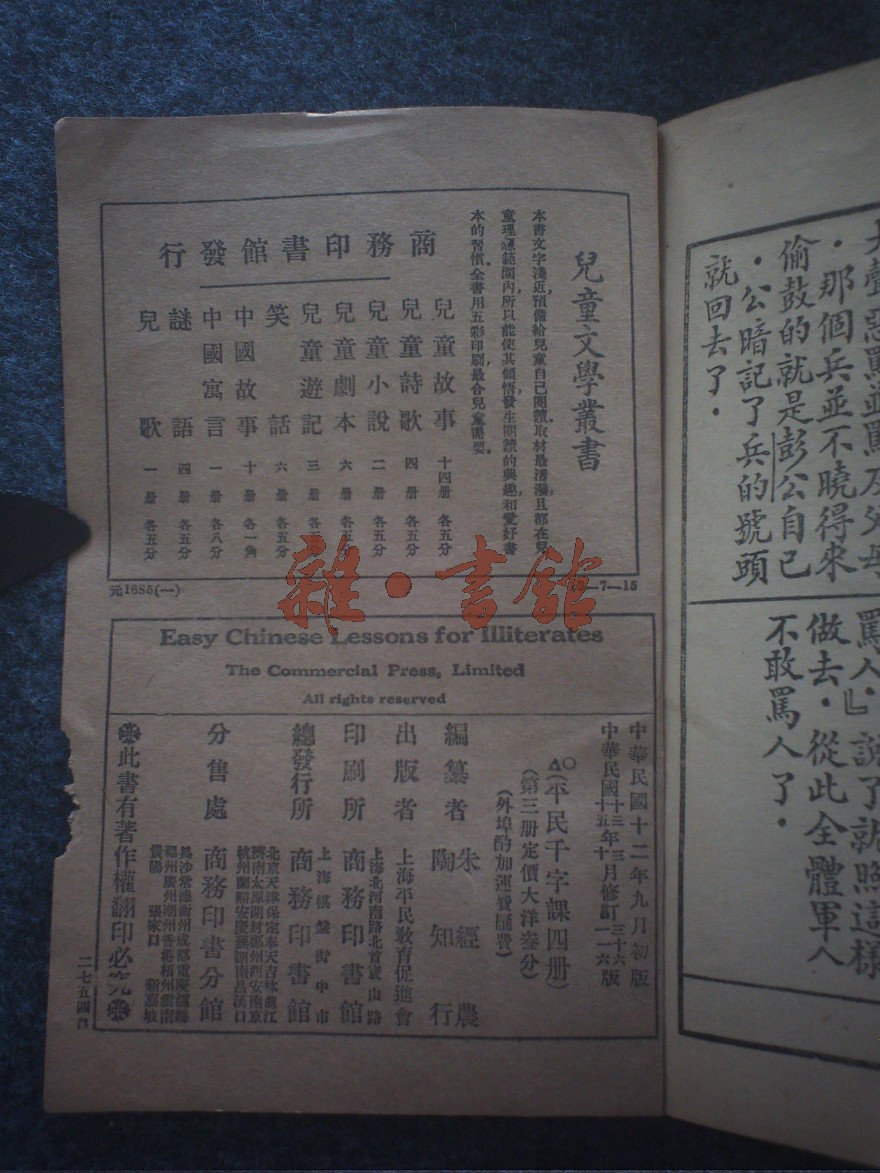 大聲惡罵並罵及父母
．那個兵並不曉得來
偷鼓的就是彭公自己
．公暗記了兵的號頭
就回去了．
罵人．』說了就照這樣
做去．從此全體軍人
不敢罵人了．
兒童文學叢書
本書文字淺近，預備給兒童自己閱讀，取材最淺淺，且都在兒
童理想範圍內，所以能使其領悟，發生閱讀的興趣，和愛好書
本的習慣，全書用五彩印刷，最合兒童需要。
商務印書館發行
兒童故事 十四册 各五分
兒童詩歌 四册 各五分
兒童小說 二册 各五分
兒童劇本 六册 各五分
兒童遊記 三册 各五
笑話 六册 各五分
中國故事 十册 各一角
中國寓言 一册 各八分
謎語 四册 各五分
兒歌 一册 各五分
元1685(一)
—7—15
雜·書館
Easy Chinese Lessons for Illiterates
The Commercial Press, Limited
All rights reserved
中華民國十二年九月初版
中華民國十三年三月修訂三十六版
十五年十月修訂一一六版
(平民千字課四册)
(第三册定價大洋叁分)
(外埠酌加運費匯費)
編纂者 朱經農 陶知行
出版者 上海平民教育促進會
上海北河南路北首寶山路
印刷所 商務印書館
上海棋盤街中市
總發行所 商務印書館
北京天津保定奉天吉林龍江
濟南太原開封鄭州西安南京
杭州蘭谿安慶蕪湖南昌漢口
分售處 商務印書分館
長沙常德衡州成都重慶瀘縣
福州廣州潮州香港梧州雲南
貴陽 張家口 新嘉坡
此書有著作權翻印必究
二七五四